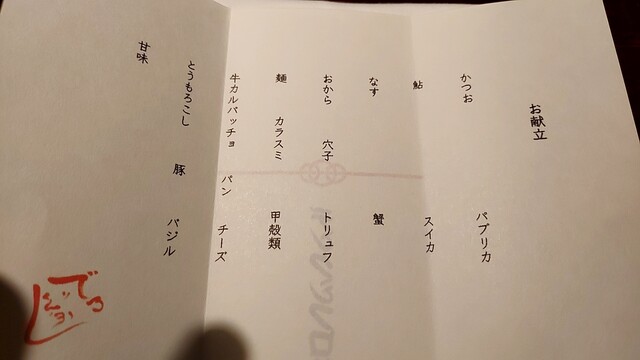 お献立
かつお パプリカ
鮎 スイカ
なす 蟹
おから 穴子 トリュフ
麺 カラスミ 甲殻類
牛カルパッチョ パン チーズ
とうもろこし 豚 バジル
甘味